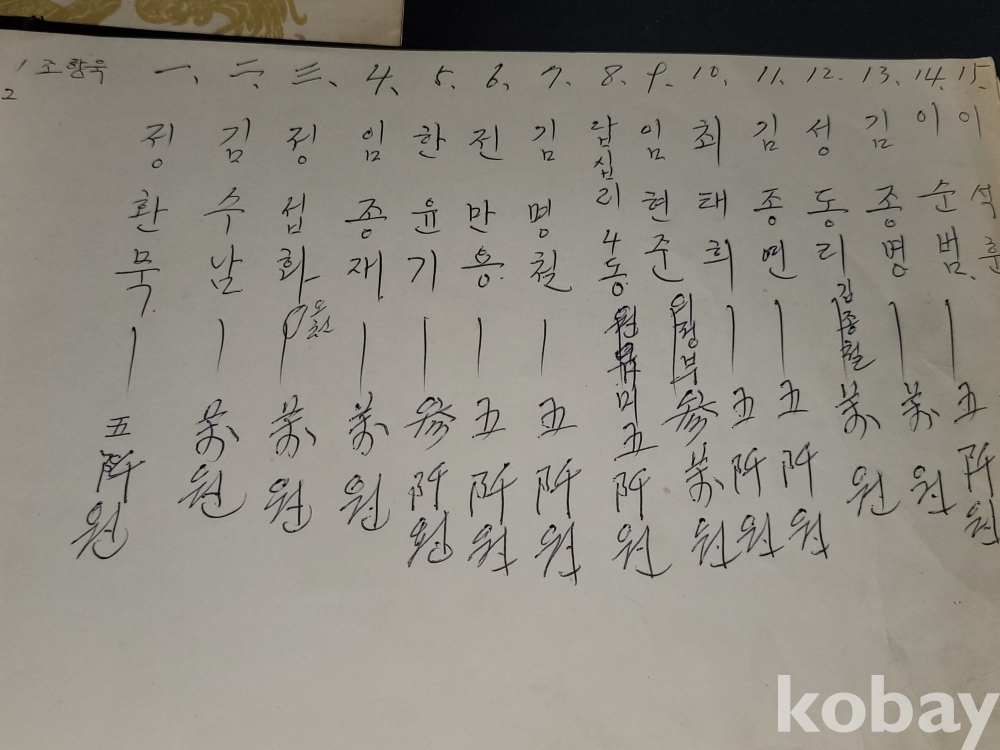 1 조항욱
2
一、 정환묵 五阡원
二、 김수남 萬원
三、 정섭화 萬원
4、 임종재 萬원
5、 한윤기 參阡원
6、 전만용 五阡원
7、 김명철 五阡원
8、 답십리4동 五阡원
9、 임현준 의정부 參萬원
10、 최태희 五阡원
11、 김종연 五阡원
12. 성동리 김종철 萬원
13. 김종명 萬원
14. 이순범 五阡원
15. 이석훈
kobay